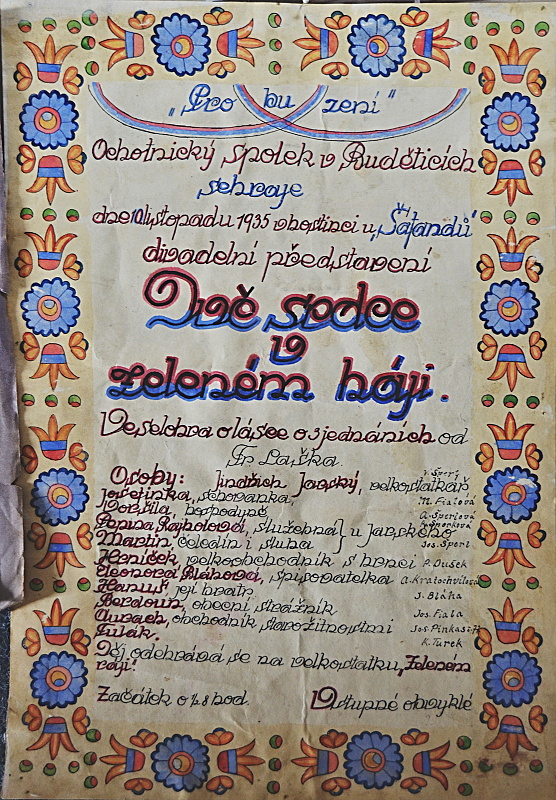 „Probuzení"
Ochotnický spolek v Buděticích
sehraje
dne listopadu 1935 v hostinci u „Šatandů"
divadelní představení
Dvě srdce
v
zeleném háji.
Veselohra o lásce o 3 jednáních od
Fr. Laška.
Osoby: Jindřich Jarský, velkostatkář
Josefinka, schovanka M. Fialová
Voršila, hospodyně A. Šperlová
Pepina Rajholová, služebná } u Jarského
Martin, čeledín i sluha Jos. Šperl
Heníček, velkoobchodník s hrnci P. Dušek
Eleonora Bláhová, spisovatelka A. Kratochvílová
Hanuš, její bratr J. Bláha
Berdoun, obecní strážník Jos. Fiala
Aurach, obchodník starožitnostmi Jos. Pinkas
Tulák. K. Turek
Děj odehrává se na velkostatku „Zeleném
ráji.
Začátek o ½8 hod. Vstupné obvyklé